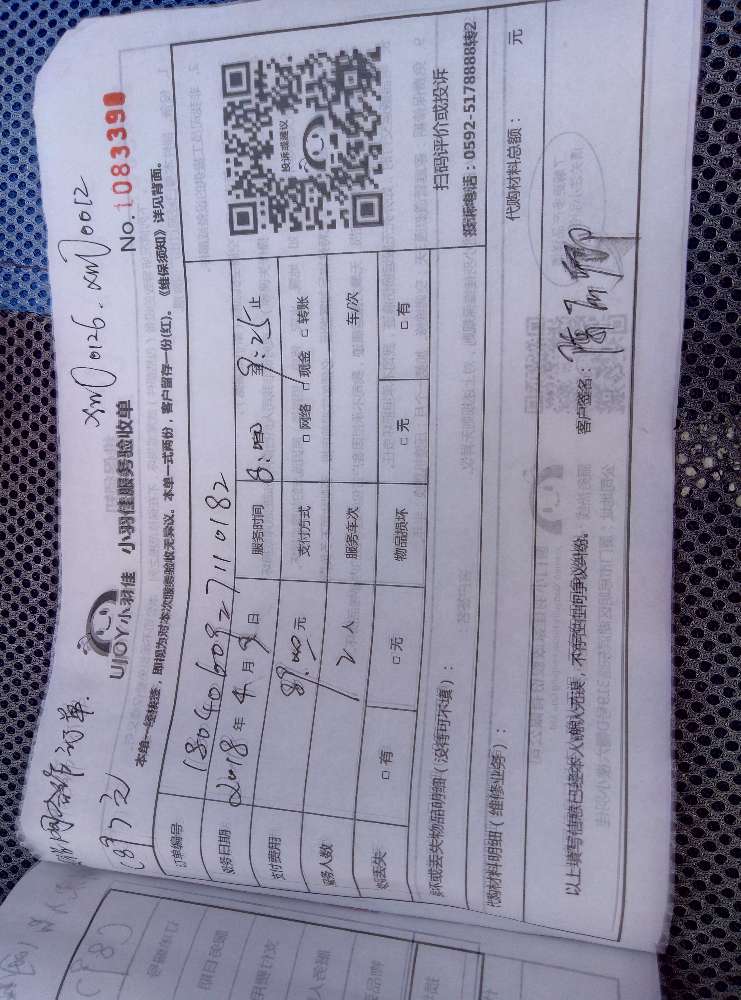 合作订单
xm00126. xm00012
UJOY小羽佳 小羽佳服务验收单
No.1083398
本单一经签署,即视为对本次服务验收无异议。本单一式两份,客户留存一份(红)。《维保须知》详见背面。
订单编号 1804060927110182
服务日期 2018年4月9日 服务时间 8:00 至 9:25止
支付费用 89.00元 支付方式 □ 网络 □ 现金 □ 转账
服务人数 2人 服务车次 车/次
物品丢失 □ 有 □ 无 物品损坏 □ 无 □ 有
投诉或建议
扫码评价或投诉
投诉电话:0592-5178888转2
损坏或丢失物品明细(没有可不填):
代购材料明细(维修业务): 代购材料总额: 元
以上填写信息已经本人确认无误,不存在任何争议纠纷。 客户签名: